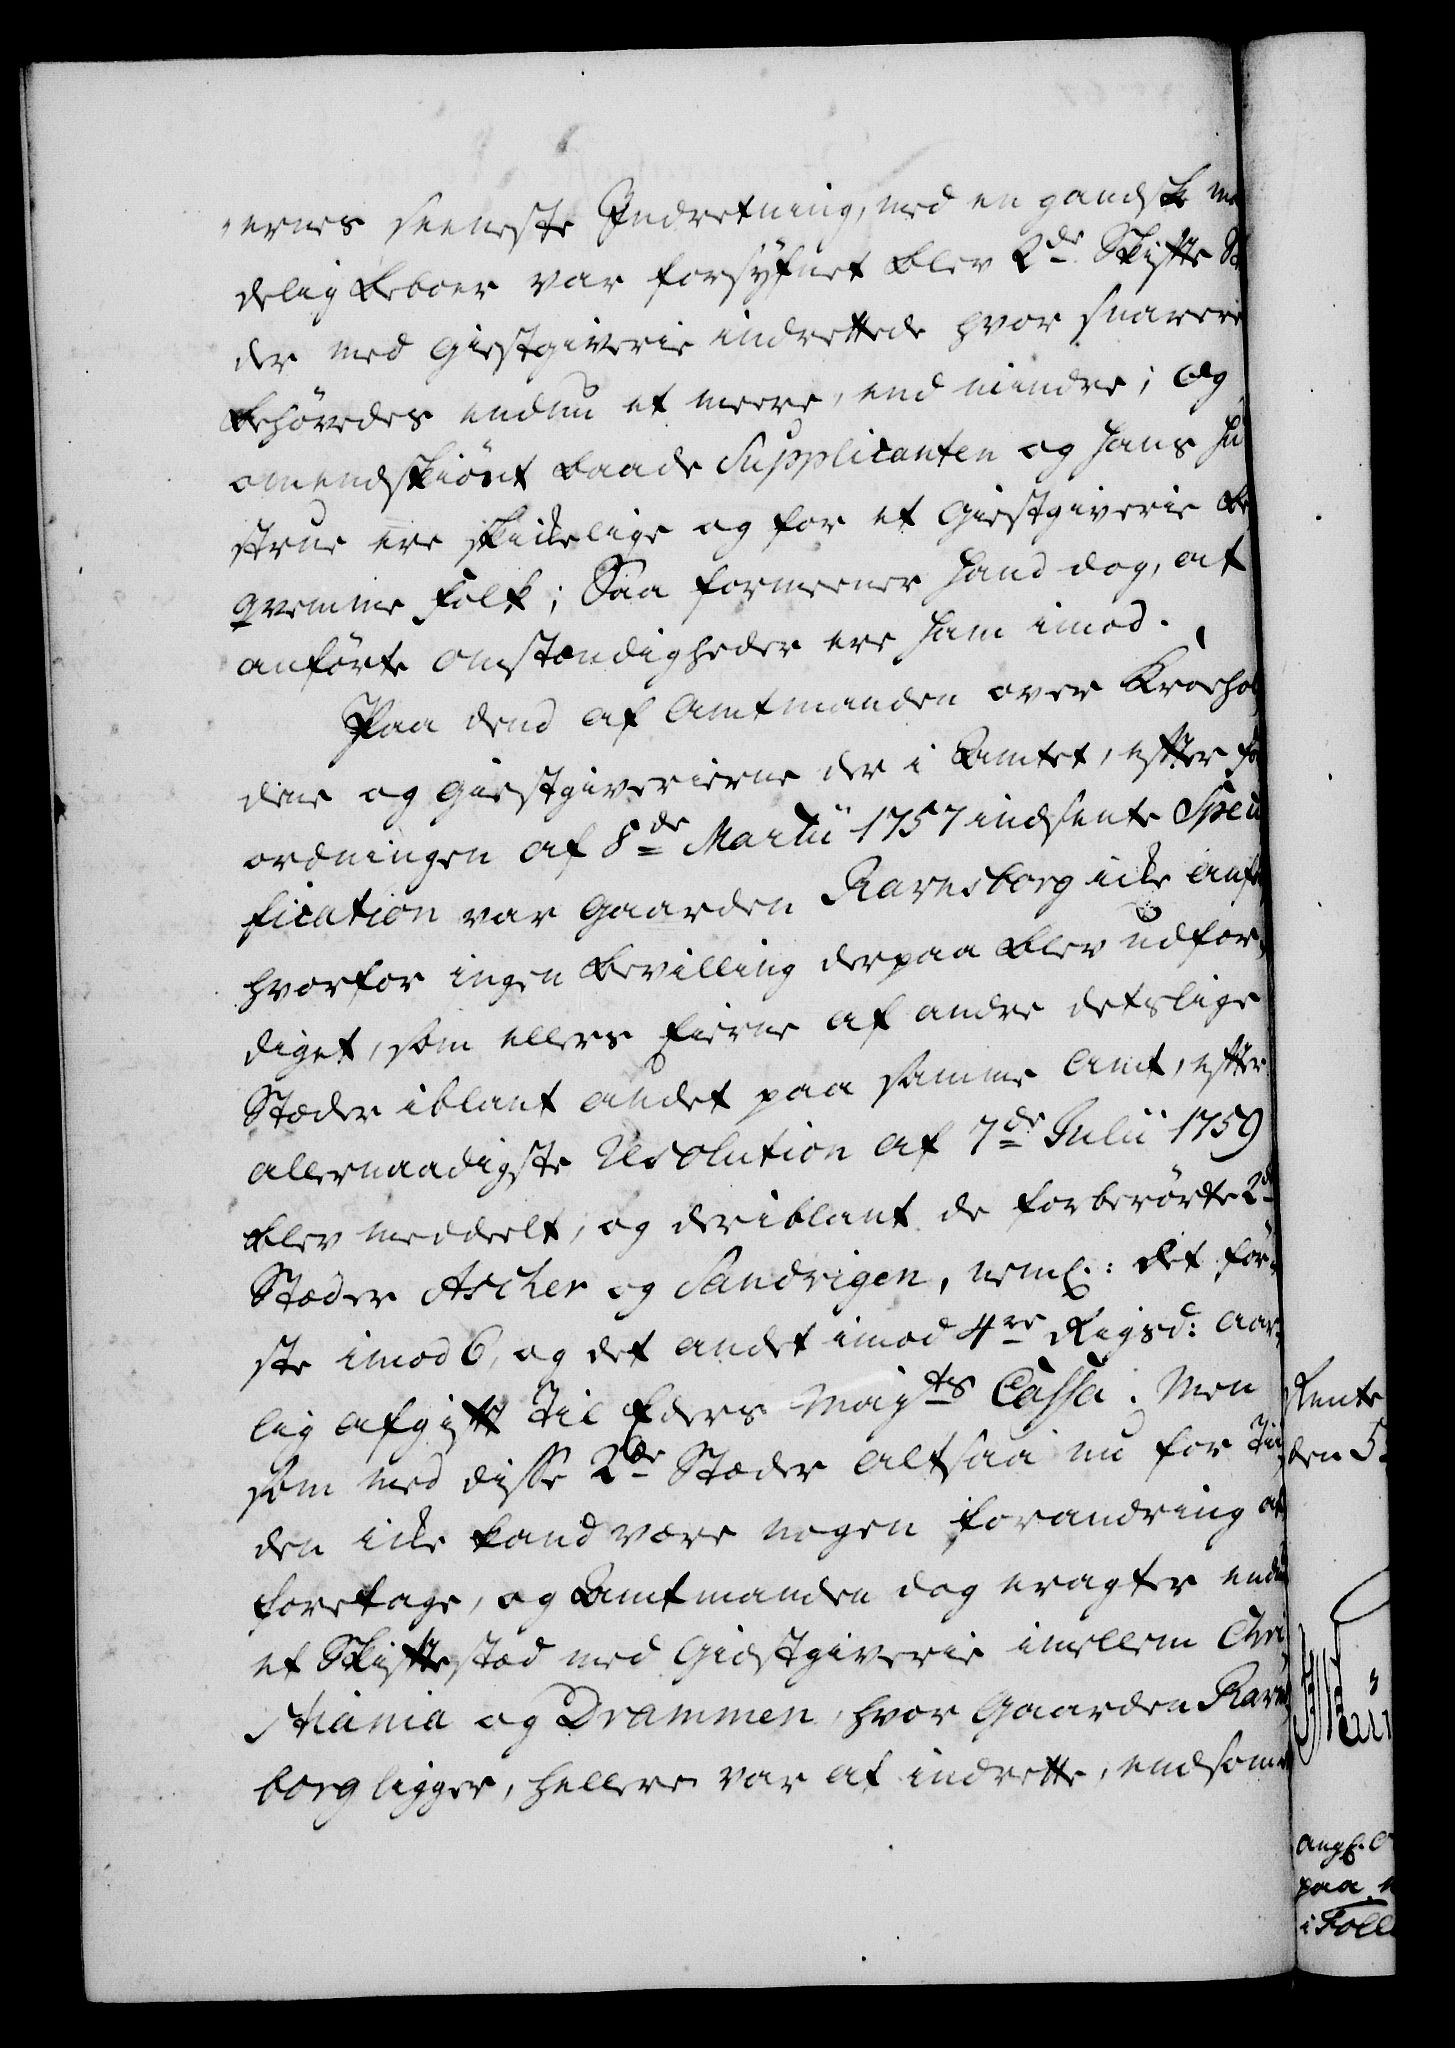 ernes seeneste Indretning, med en gandske
delig Beboer var forsÿfnet blev 2de Skifte
der med Giestgiverie indrettede hvor snarere
behøvedes endnu et meere, end mindre; Og
omendskiønt baade Supplicanten og hans Hu
strue ere skikkelige og for et Giestgiverie be
qvemme Folk; Saa formeener hand dog, at
anførte Omstændigheder ere ham imod.
Paa dend af Amtmanden over Kroehol
dene og Giestgiverierne der i Amtet, efter For
ordningen af 8de Martii 1757 indsente Speci
fication var Gaarden Ravnsborg icke anf
hvorfor ingen Bevilling derpaa blev udfær
diget, som ellers Eierne af andre detslige
Stæder iblant andet paa samme Amt, efter
allernaadigste Resolution af 7de Julii 1759
blev meddeelt, og deriblant de forberørte 2de
Stæder Ascher og Sandvigen, neml: det før
ste imod 6, og det andet imod 4re Rigsd: aar
lig afgift til Eders Mayts Cassa. Men
som med disse 2de Stæder altsaa nu for Tii
den icke kand være nogen forandring at
foretage, og Amtmanden dog eragter endnu
et Skiftestæd med Giæstgiverie imellem Chri
stiania og Drammen, hvor Gaarden Ravns
borg ligger, hellere var at indrette, endsom
Rente
den 5
angl.
paa
i Foll